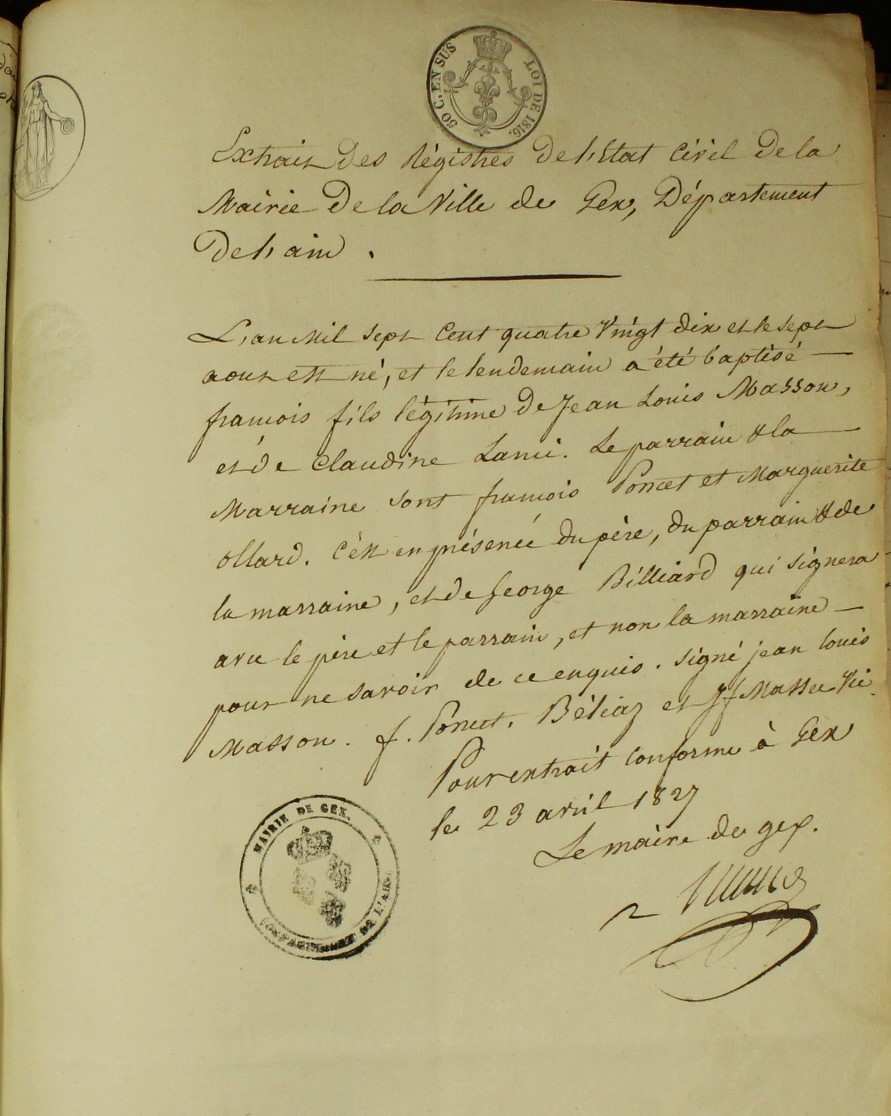 50 C. EN SUS
LOI DE 1816.
Extrait des Régistres de l'Etat Civil de la
Mairie de la Ville de Gex, Département
de l'ain.
L'an Mil sept Cent quatre Vingt dix et le sept
aout est né, et le lendemain a été baptisé
françois fils légitime de Jean Louis Masson,
et de Claudine Lanci. Le parrain & la
Marraine sont françois Poncet et Marguerite
ollard. C'est en présence du père, du parrain & de
la marraine, et de George Billiard qui signera
avec le père et le parrain, et non la marraine
pour ne savoir de ce enquis. signé jean louis
Masson. f. Poncet. Béliaz et Massu Vic.
Pour extrait conforme à Gex
le 23 avril 1827
Le maire de gex.
MAIRIE DE GEX.
DEPARTEMENT DE L'AIN.